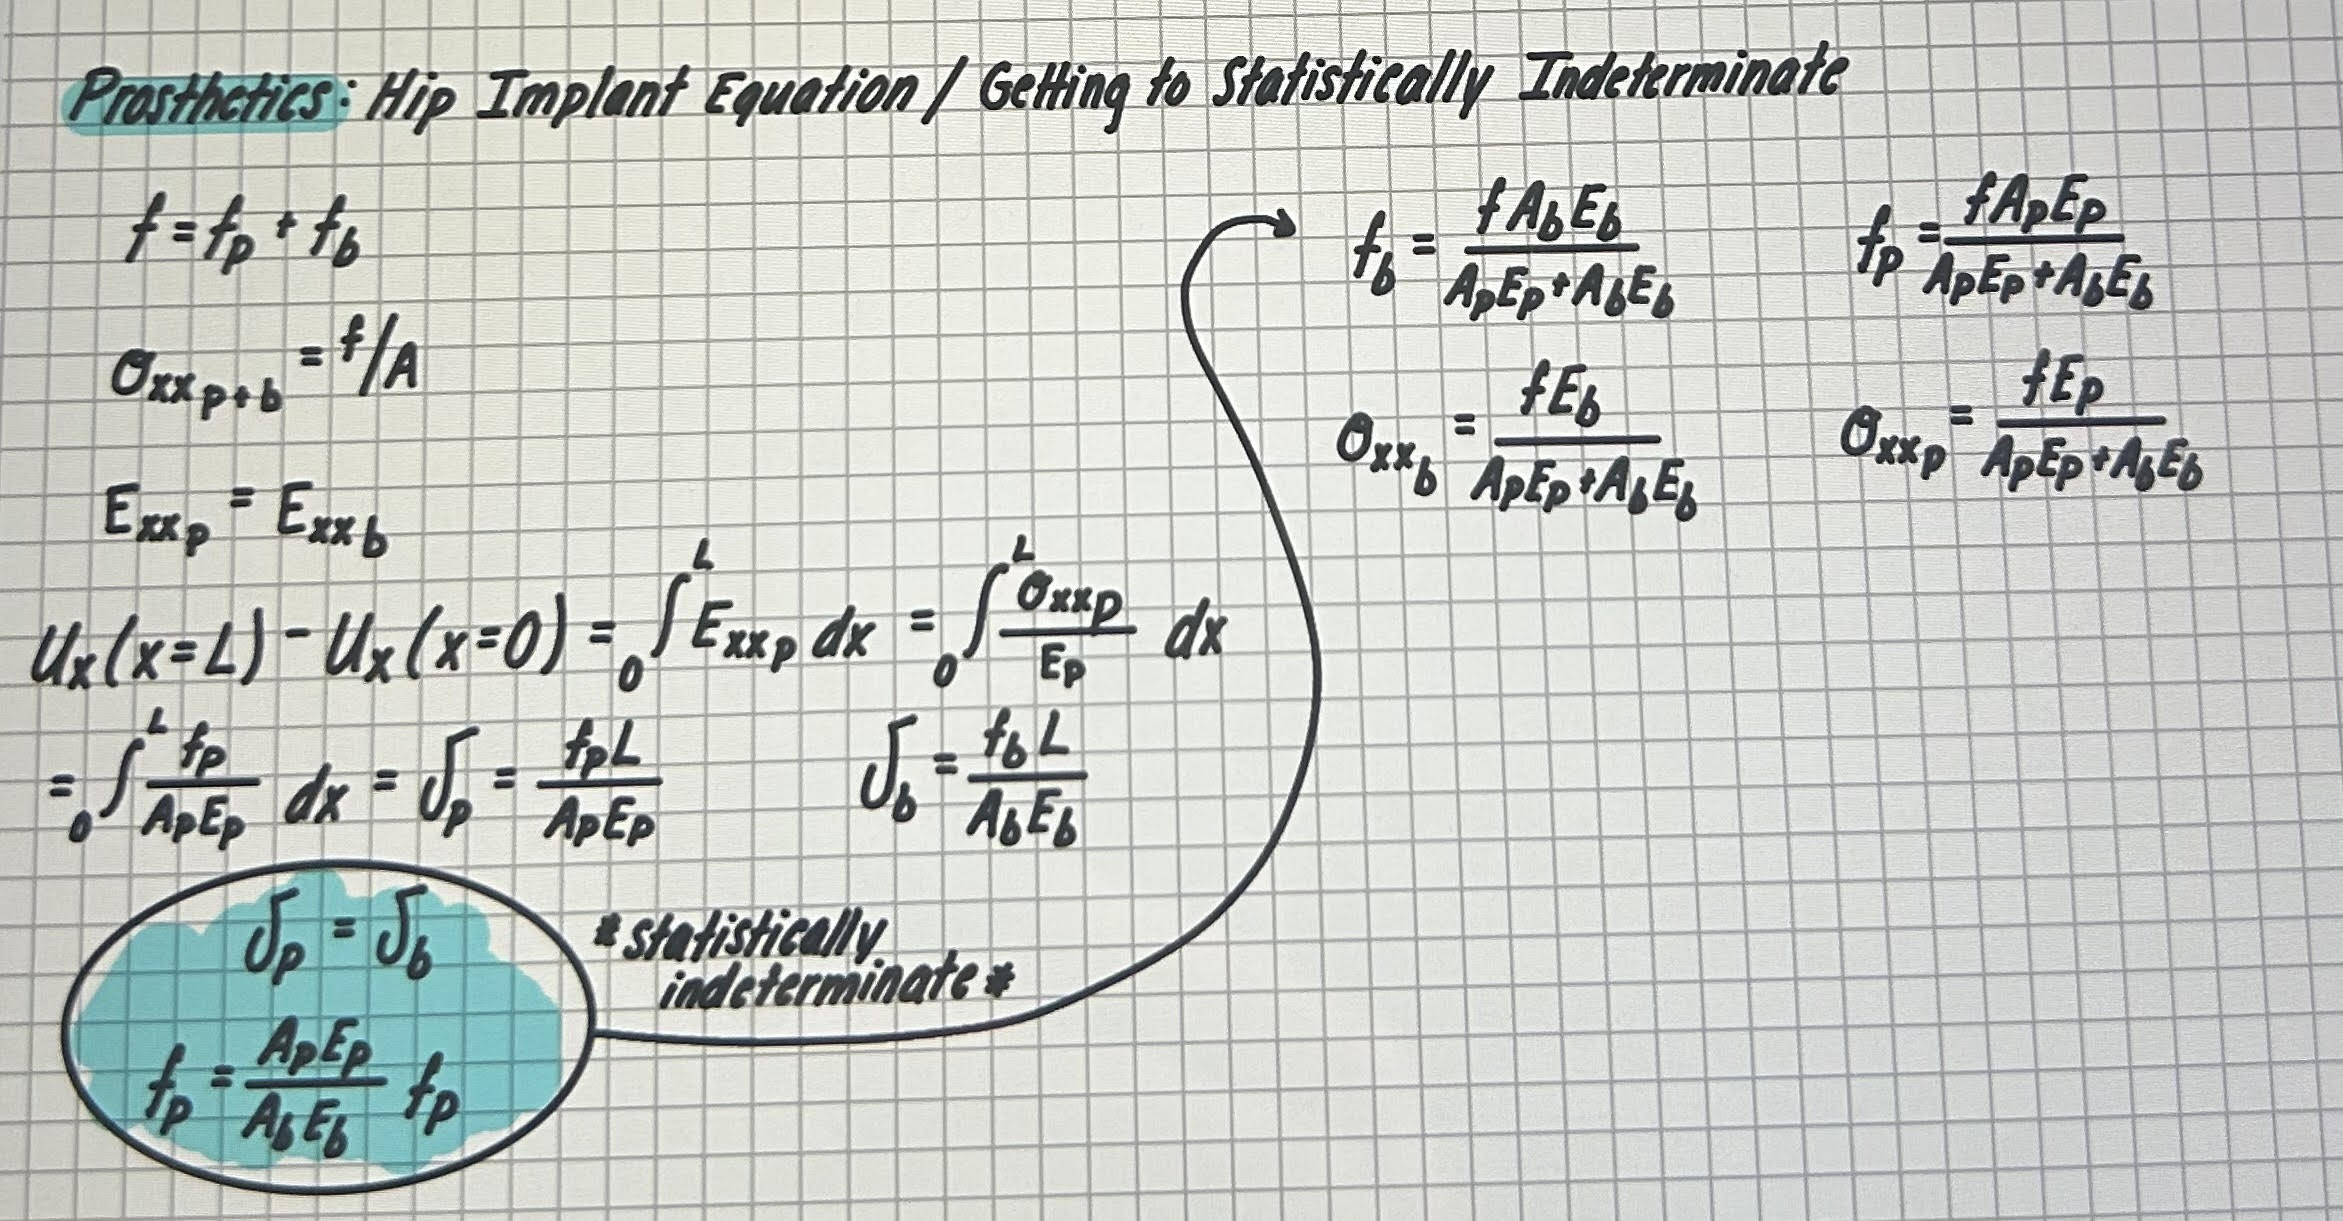 Prosthetics: Hip Implant Equation / Getting to Statistically Indeterminate
f = fp + fb
σxxp+b = f/A
Exxp = Exxb
Ux(x=L) - Ux(x=0) = ₀∫ᴸ Exxp dx = ₀∫ᴸ σxxp/Ep dx
= ₀∫ᴸ fp/ApEp dx = δp = fpL/ApEp
δb = fbL/AbEb
δp = δb
fp = ApEp/AbEb fp
*statistically
indeterminate*
fb = fAbEb/ApEp+AbEb
fp = fApEp/ApEp+AbEb
σxxb = fEb/ApEp+AbEb
σxxp = fEp/ApEp+AbEb